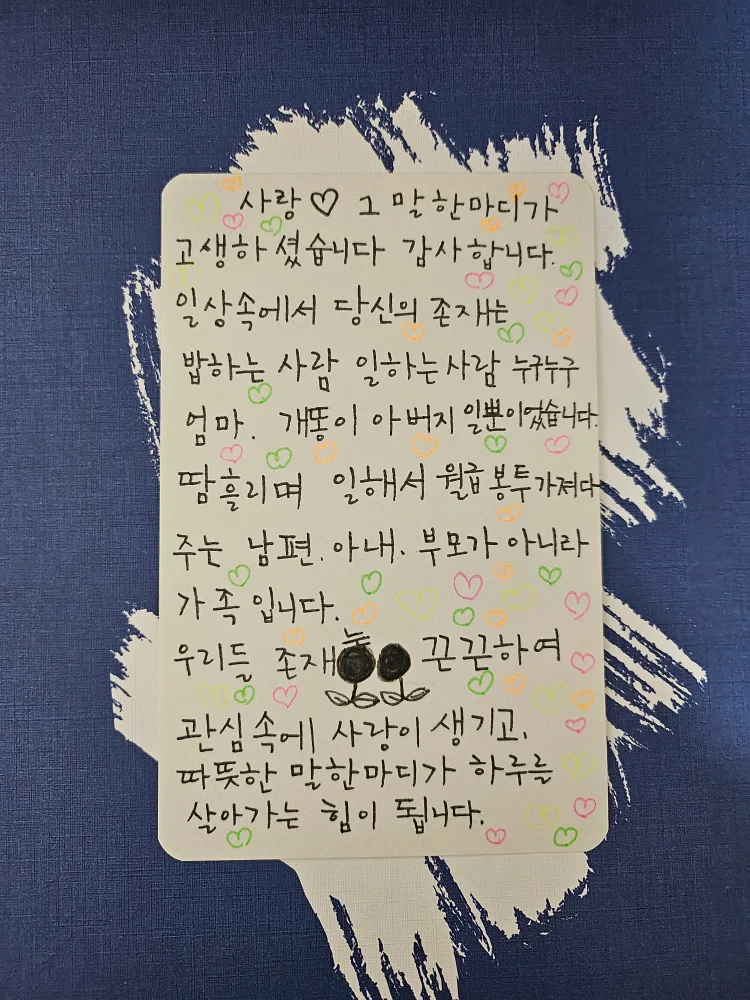 사랑♡ 그 말 한마디가
고생하셨습니다 감사합니다.
일상속에서 당신의 존재는
밥하는 사람 일하는 사람 누구누구
엄마. 개똥이 아버지 일뿐이었습니다.
땀흘리며 일해서 월급봉투가져다
주는 남편. 아내. 부모가 아니라
가족입니다.
우리들 존재 끈끈하여
관심속에 사랑이 생기고.
따뜻한 말한마디가 하루를
살아가는 힘이 됩니다.